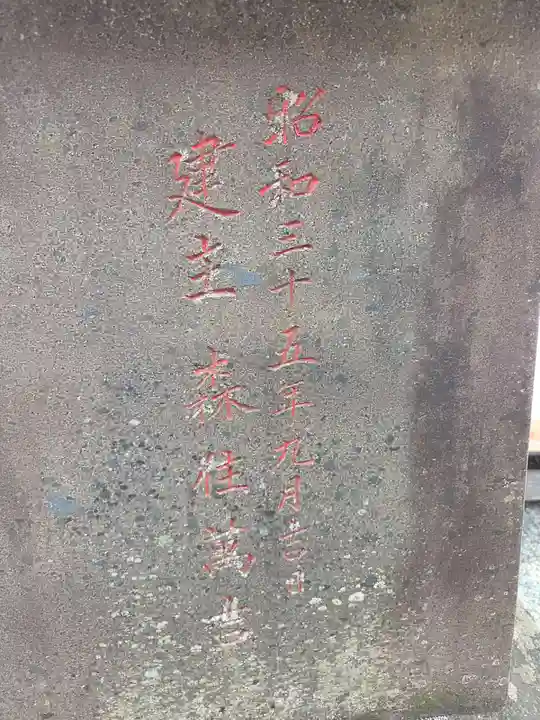 昭和三十五年九月吉日
建主 森住萬吉